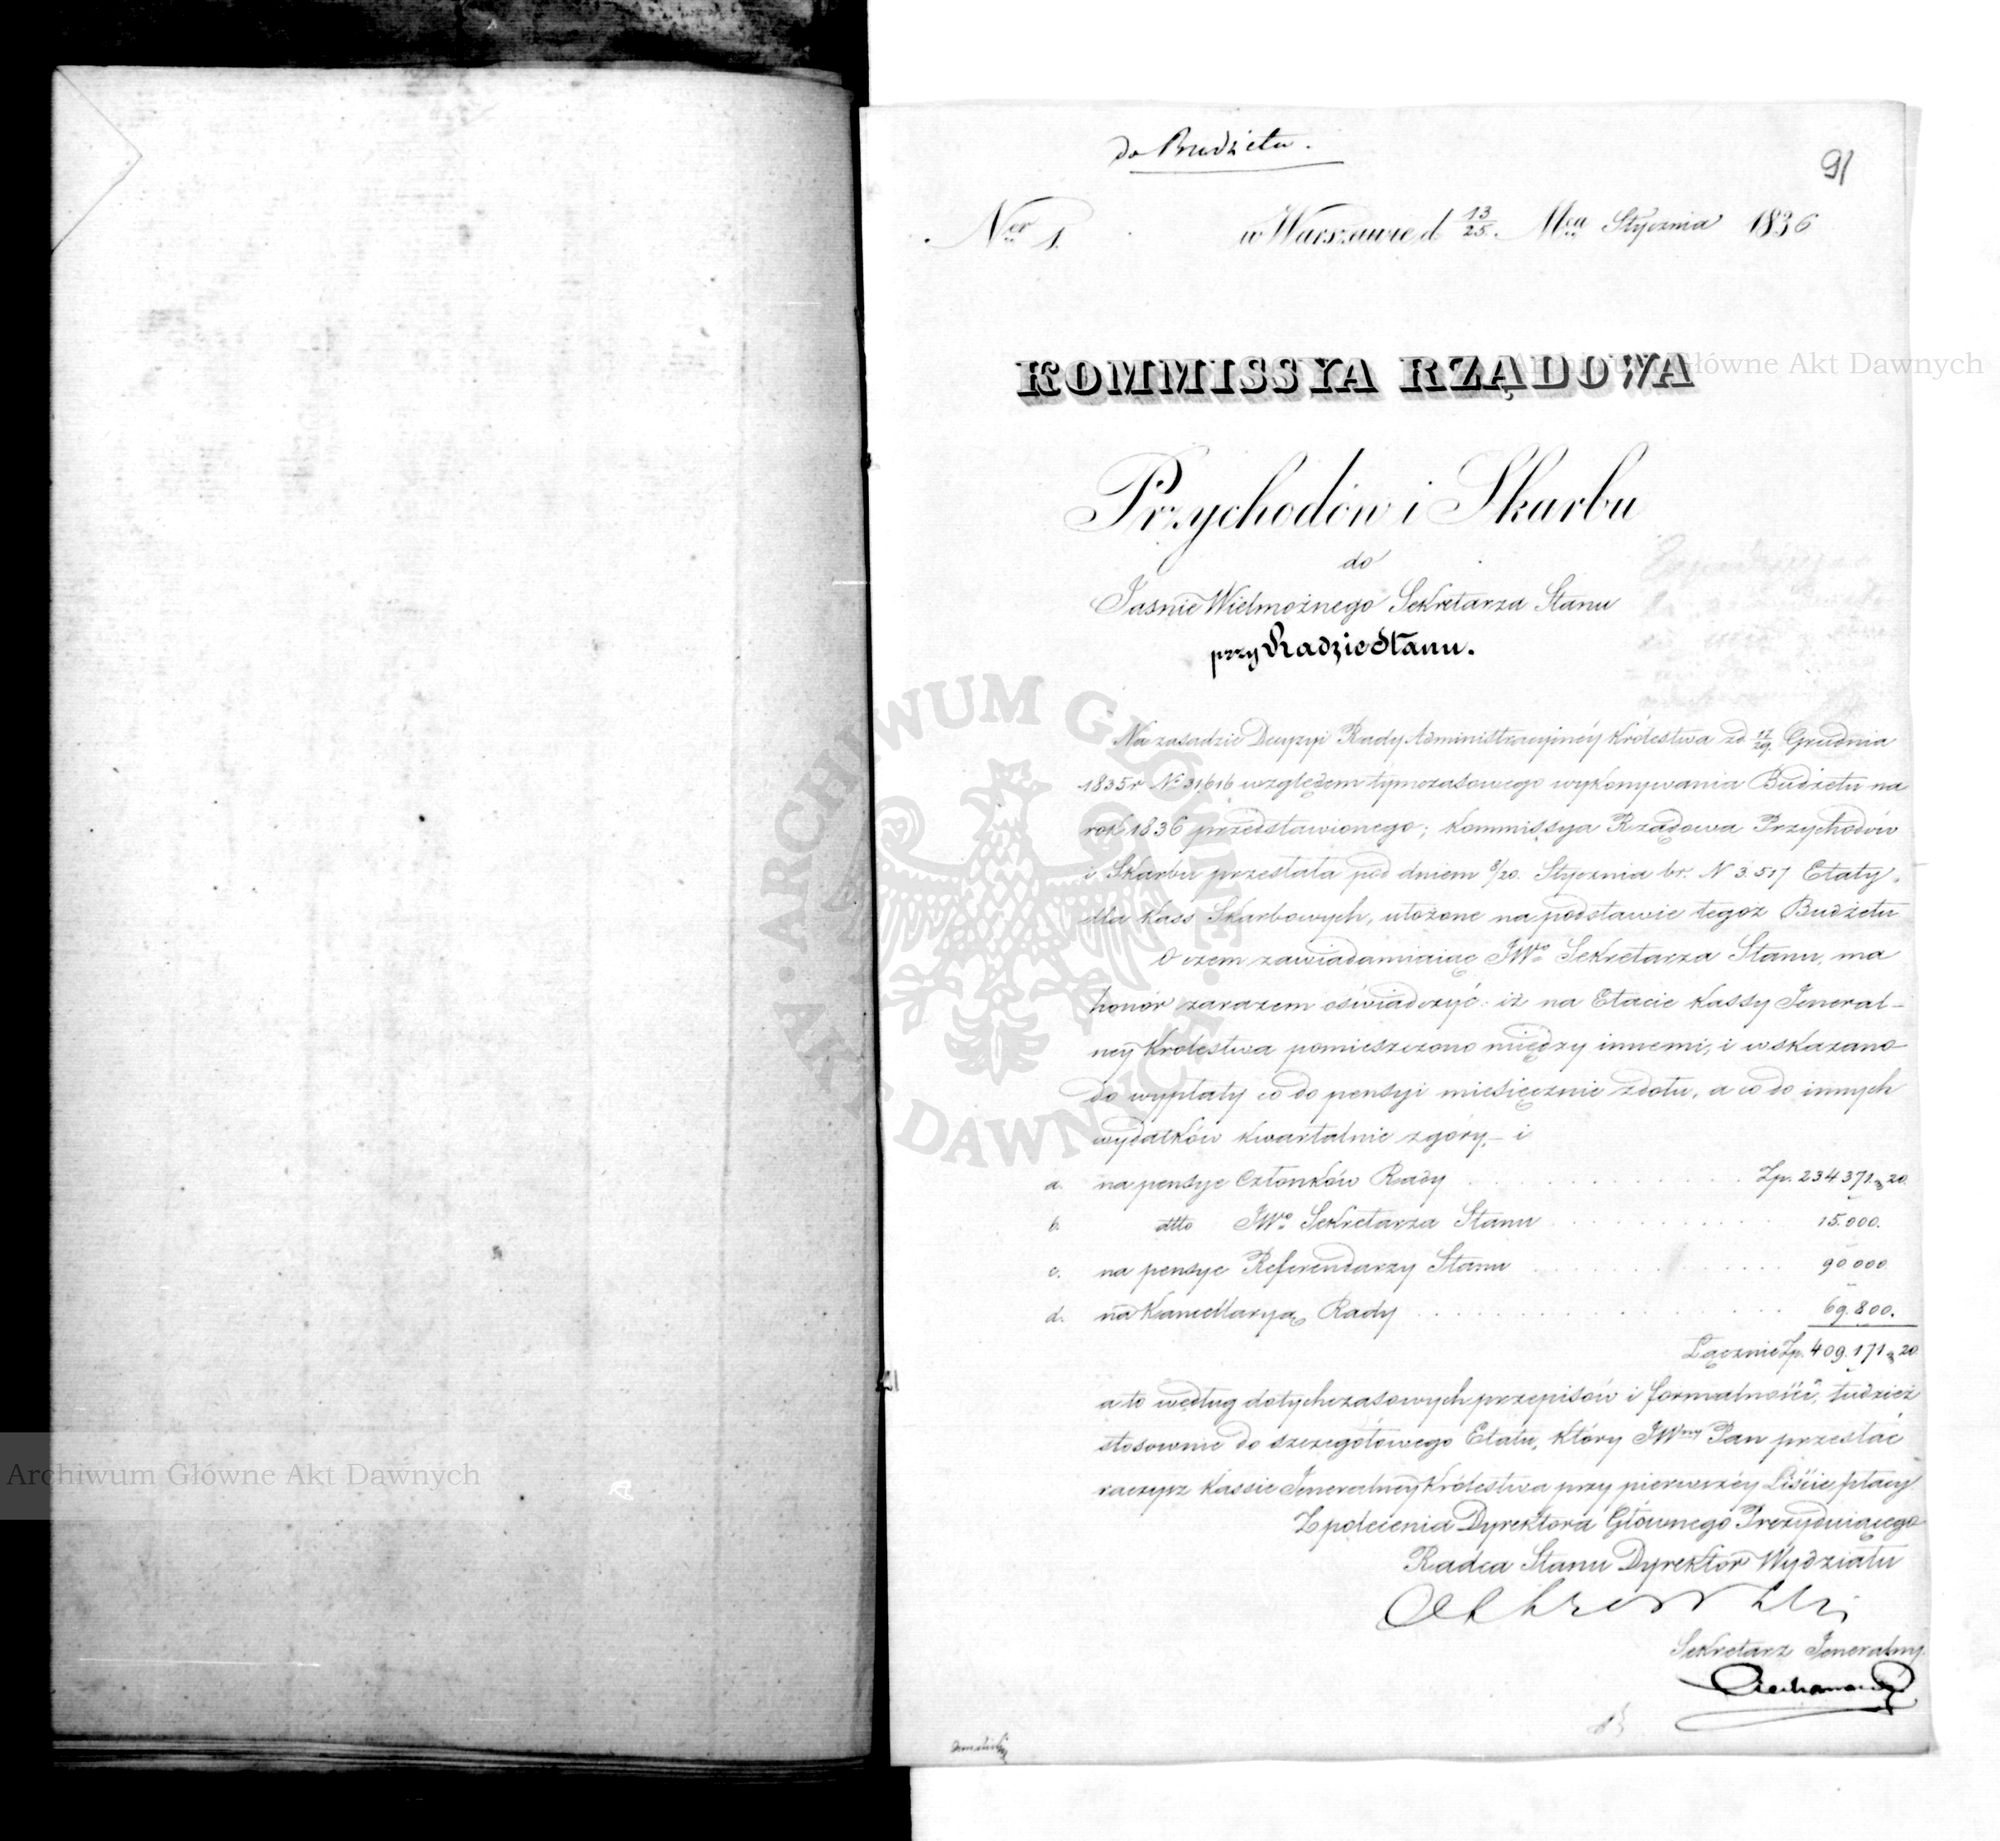 do Budżetu.
91
Ner 1.
w Warszawie d 13/25. Mca Stycznia 1836
KOMMISSYA RZĄDOWA
Przychodów i Skarbu
do
Jaśnie Wielmożnego Sekretarza Stanu
przy Radzie Stanu.
Na zasadzie Decyzyi Rady Administracyjnéy Królestwa z d 17/29. Grudnia
1835 r № 31616 względem tymczasowego wykonywania Budżetu na
rok 1836 przedstawionego; Kommissya Rządowa Przychodów
i Skarbu przesłała pod dniem 8/20. Stycznia br. N 3.517 Etaty,
dla Kass Skarbowych, ułożone na podstawie tegoż Budżetu
O czem zawiadamiaiąc JWo Sekretarza Stanu, ma
honor zarazem oświadczyć iż na Etacie Kassy Jeneral-
néy Królestwa pomieszczono między innemi, i wskazano
do wypłaty co do pensyi miesięcznie zdołu, a co do innych
wydatków kwartalnie zgóry, i
a. na pensye Członków Rady Zp. 234371. 20.
b. dtto JWo Sekretarza Stanu 15.000.
c. na pensye Referendarzy Stanu 90000
d. na Kancellaryą Rady 69.800.
Łącznie Zp. 409.171 20
a to według dotychczasowych przepisów i formalności, tudzież
stosownie do szczegółowego Etatu, który JWny Pan przesłać
raczysz Kassie Jeneralnéy Królestwa przy pierwszéy Liście płacy.
Z polecenia Dyrektora Głównego Prezyduiącego
Radca Stanu Dyrektor Wydziału
Sekretarz Jeneralny.
Archiwum Główne Akt Dawnych
ARCHIWUM GŁÓWNE AKT DAWNYCH
Archiwum Główne Akt Dawnych